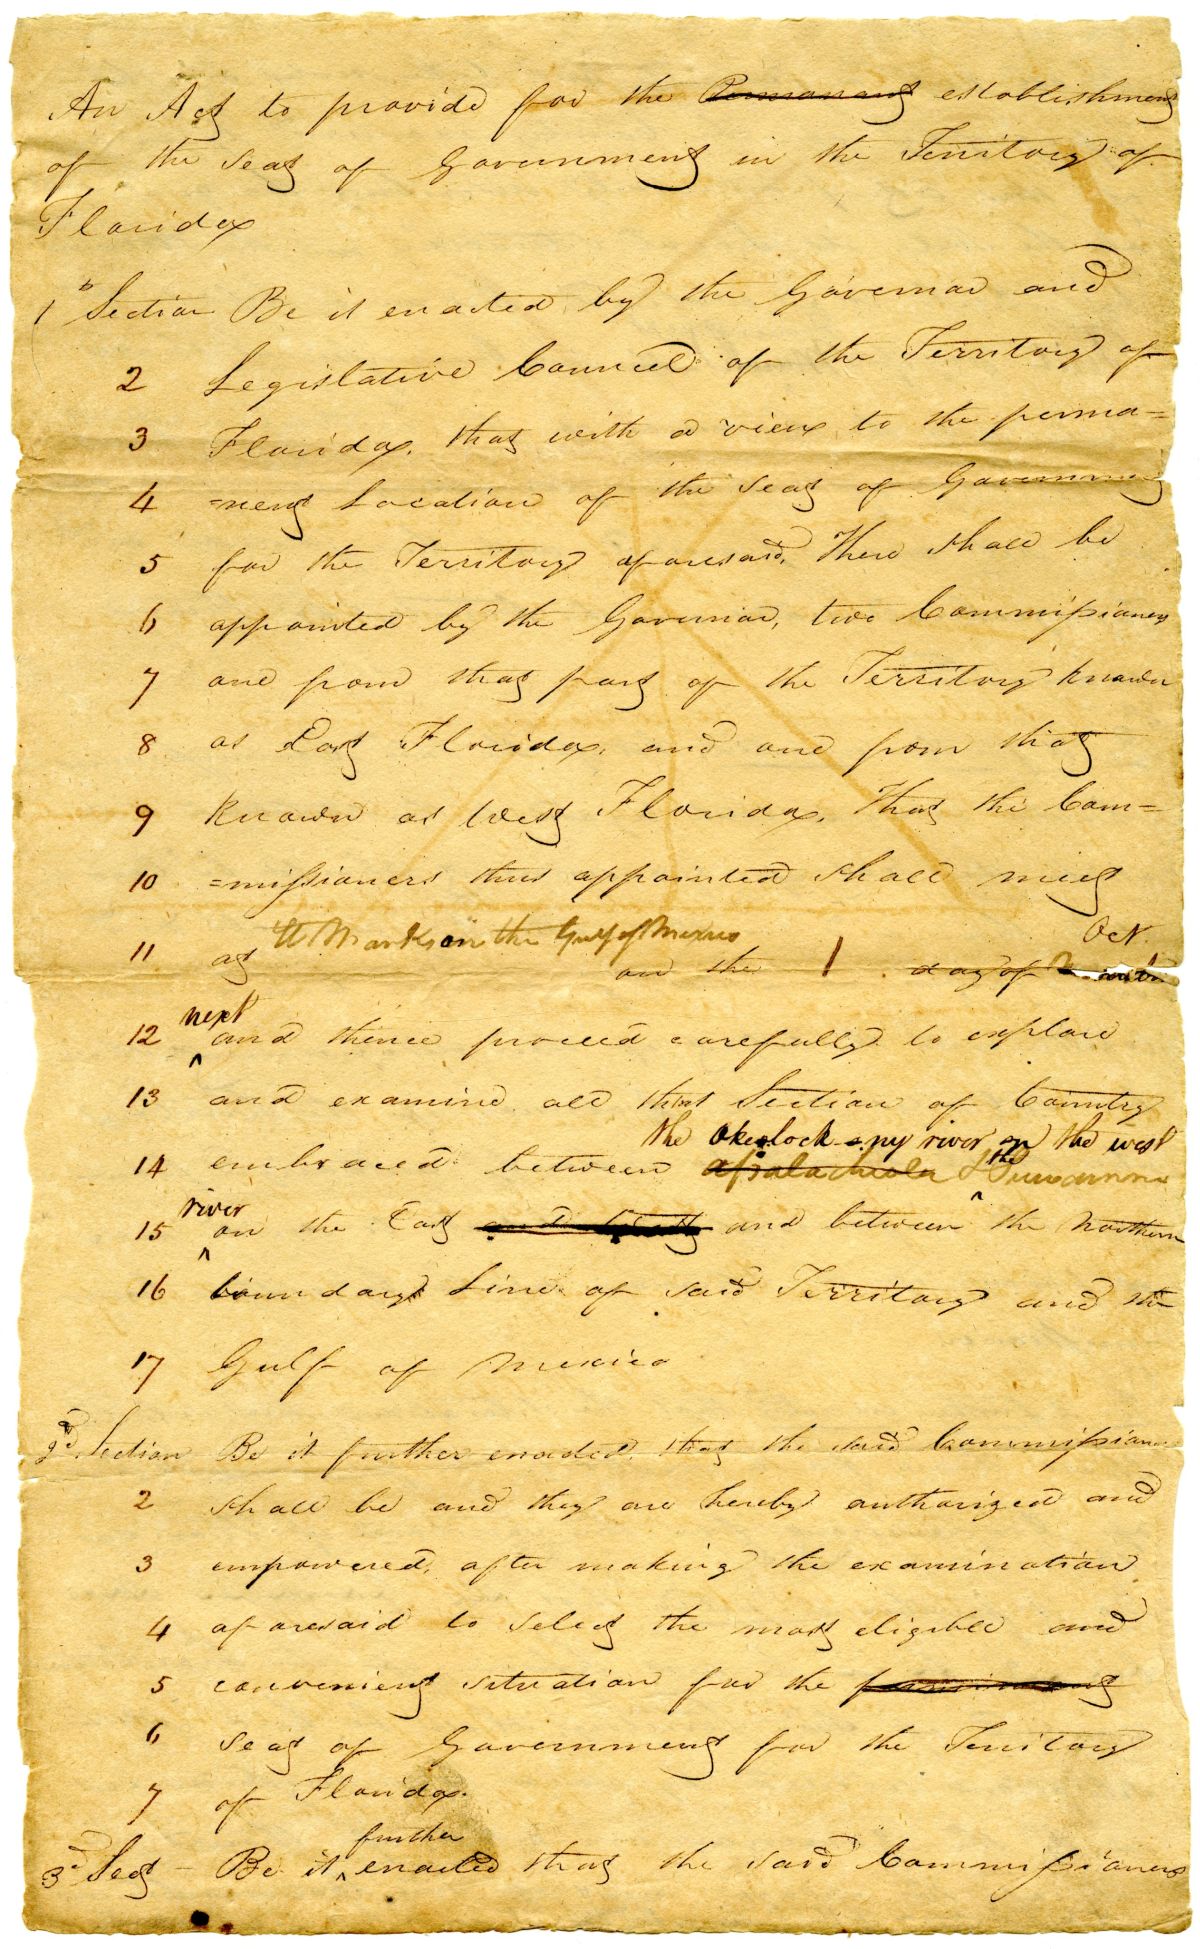 An Act to provide for the Permanent establishment
of the seat of Government in the Territory of
Florida
1 Section Be it enacted by the Governor and
2 Legislative Council of the Territory of
3 Florida, that with a view to the perma=
4 =nent Location of the seat of Government
5 for the Territory aforesaid, There shall be
6 appointed by the Governor, two Commissioners
7 one from that part of the Territory known
8 as East Florida, and one from that
9 Known as West Florida, That the Com=
10 =missioners thus appointed shall meet
St Marks on the Gulf of Mexico Oct.
11 at on the 1 day of
next
12 ^ and thence proceed carefully to explore
13 and examine all that Section of Country
the Okelock-ny river on the west
14 embraced between apalachicola & the Suwannee
river
15 ^ on the East and West and between ^ the Northern
16 boundary Line of said Territory and the
17 Gulf of Mexico
2d Section Be it further enacted, that the said Commissioners
2 shall be and they are hereby authorized and
3 empowered, after making the examination
4 aforesaid to select the most eligible and
5 convenient situation for the permanent
6 seat of Government for the Territory
7 of Florida.
further
3d Sect - Be it ^ enacted that the said Commissioners